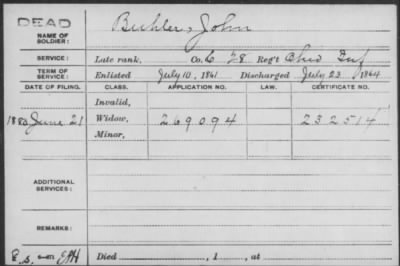 DEAD
NAME OF SOLDIER: Buhler, John
SERVICE: Late rank, Co. C 28 Reg't Ohio Inf
TERM OF SERVICE: Enlisted July 10, 1861 Discharged July 23 1864
DATE OF FILING. CLASS. APPLICATION NO. LAW. CERTIFICATE NO.
Invalid,
1880 June 21 Widow, 269094 232514
Minor,
ADDITIONAL SERVICES:
REMARKS:
Died , 1 , at